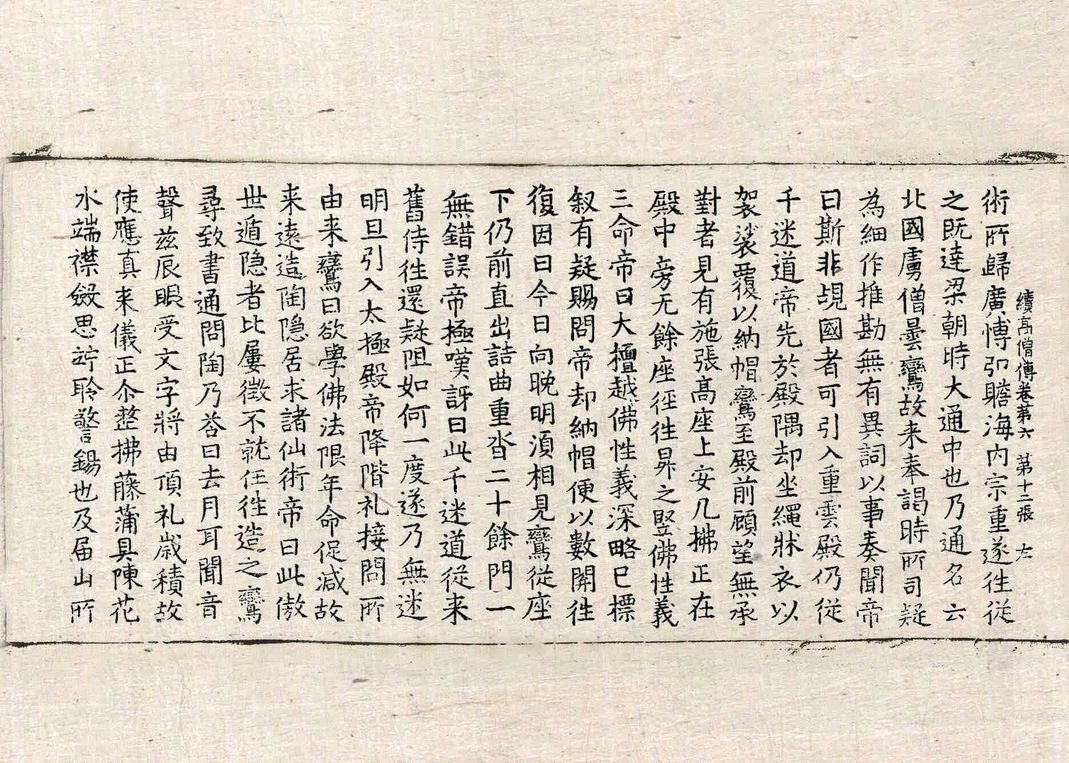 續高僧傳卷第六 第十二張 左
術所歸廣博弘贍海内宗重遂往從
之既達梁朝時大通中也乃通名云
北國虜僧曇鸞故来奉謁時所司疑
為細作推勘無有異詞以事奏聞帝
曰斯非覘國者可引入重雲殿仍従
千迷道帝先於殿隅却坐繩牀衣以
袈裟覆以納帽鸞至殿前顧望無承
對者見有施張髙座上安几拂正在
殿中旁无餘座徑往昇之竪佛性義
三命帝曰大檀越佛性義深略已標
叙有疑賜問帝却納帽便以數關往
復因曰今日向晚明須相見鸞從座
下仍前直出詰曲重沓二十餘門一
無錯誤帝極嘆訝曰此千迷道從来
舊侍往還疑阻如何一度遂乃無迷
明旦引入太極殿帝降階礼接問所
由来鸞曰欲學佛法恨年命促減故
来遠造陶隐居求諸仙術帝曰此傲
世遁隐者比屢徵不就任往造之鸞
尋致書通問陶乃荅曰去月耳聞音
聲兹辰眼受文字將由頂礼嵗積故
使應真来儀正尒整拂藤蒲具陳花
水端襟斂思竚聆警錫也及届山所